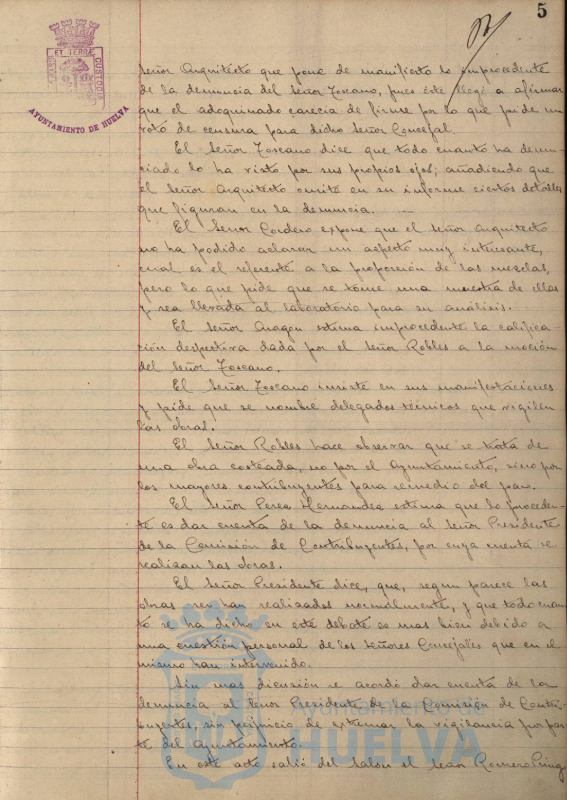 5
ET TERRA
CUSTODIA
AYUNTAMIENTO DE HUELVA
Señor Arquitecto que pone de manifiesto lo improcedente
de la denuncia del Señor Toscano, pues éste llegó a afirmar
que el adoquinado carecia de firme por lo que pide un
voto de censura para dicho Señor Concejal.
El Señor Toscano dice que todo cuanto ha denun-
ciado lo ha visto por sus propios ojos; añadiendo que
el Señor Arquitecto omite en su informe ciertos detalles
que figuran en la denuncia.
El Señor Cordero expone que el señor Arquitecto
no ha podido aclarar un aspecto muy interesante,
cual es el referente a la proporción de las mezclas,
pero lo que pide que se tome una muestra de ellas
y sea llevada al laboratorio para su análisis.
El Señor Aragon estima improcedente la califica-
ción despectiva dada por el Señor Robles a la moción
del Señor Toscano.
El Señor Toscano insiste en sus manifestaciones
y pide que se nombre delegados técnicos que vigilen
las obras.
El Señor Robles hace observar que se trata de
una obra costeada, no por el Ayuntamiento, sino por
los mayores contribuyentes para remedio del paro.
El Señor Perea Hernandez estima que lo proceden-
te es dar cuenta de la denuncia al Señor Presidente
de la Comisión de Contribuyentes, por cuya cuenta se
realizan las obras.
El Señor Presidente dice, que, segun parece las
obras se han realizados normalmente, y que todo cuan-
to se ha dicho en este debate es mas bien debido a
una cuestión personal de los señores Concejales que en el
mismo han intervenido.
Sin mas dicusión se acordó dar cuenta de la
denuncia al Señor Presidente de la Comisión de Contri-
buyentes, sin perjuicio de extremar la vigilancia por par-
te del Ayuntamiento.
En este acto salió del Salón el Señor Romero
Ayuntamiento de
HUELVA